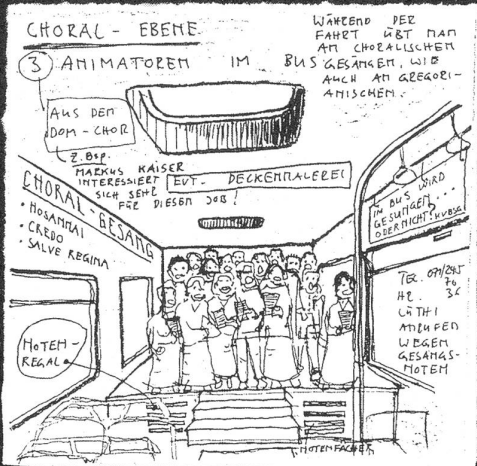 CHORAL - EBENE
3 ANIMATOREN IM BUS
WÄHREND DER
FAHRT ÜBT MAN
AN CHORALISCHEN
GESÄNGEN, WIE
AUCH AN GREGORI-
ANISCHEN.
AUS DEM
DOM - CHOR
Z. Bsp.
MARKUS KAISER
INTERESSIERT
SICH SEHR
FÜR DIESEN JOB!
EVT. DECKENMALEREI
CHORAL - GESANG
• HOSANNA!
• CREDO
• SALVE REGINA
IM BUS WIRD
GESUNGEN...
ODER NICHT!
NOTEN -
REGAL
TEL. 071/245
76
36
HR.
LÜTHI
ANRUFEN
WEGEN
GESANGS-
NOTEN
NOTENFÄCHER